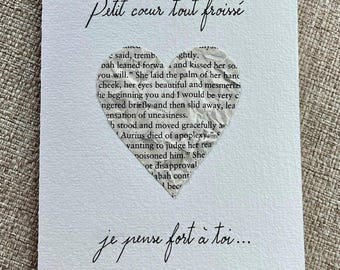 Petit cœur tout froissé
said, tremb
nightly.
oah leaned forwa and kissed her so
you will." She laid the palm of her hand
cheek, her eyes beautiful and mesmeriz
he beginning you and I would be very c
ngered briefly and then slid away, lea
ensation of uneasiness.
h stood and moved gracefully a
Aurius died of apoplexy."
wanting to judge her rea
poisoned him." She
or disapproval
bah cont
er
je pense fort à toi...